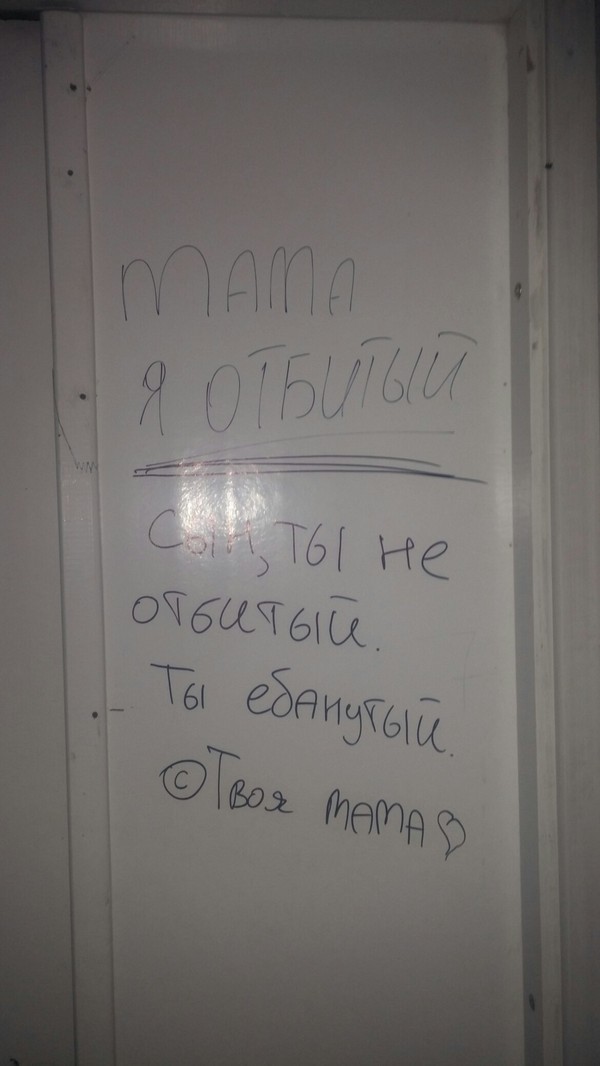 МАМА
Я ОТБИТЫЙ
Сын, ты не
отбитый.
Ты ебанутый.
© Твоя МАМА♡